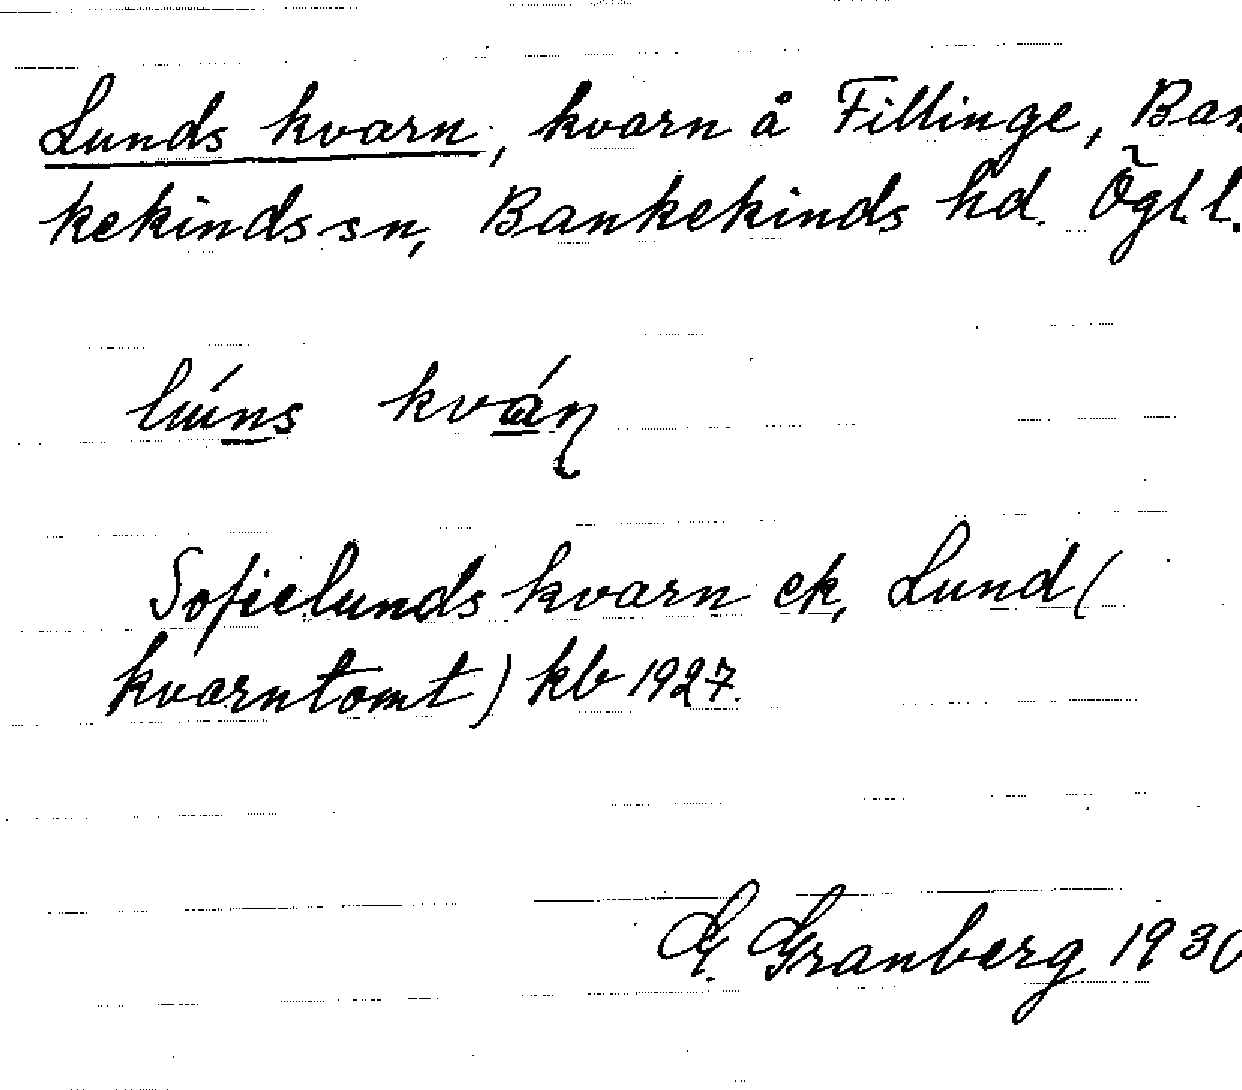 Lunds kvarn, kvarn å Fillinge, Ban
kekinds sn, Bankekinds hd. Ögtl.
lúns kván
Sofielunds kvarn ek, Lund (
kvarntomt) kb 1927.
G. Granberg 1930